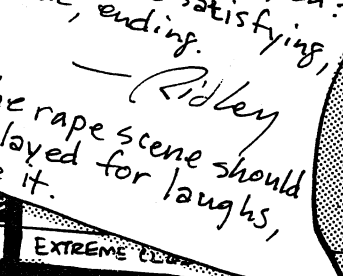 satisfying,
ending.
— Ridley
rape scene should
layed for laughs,
it.
EXTREME